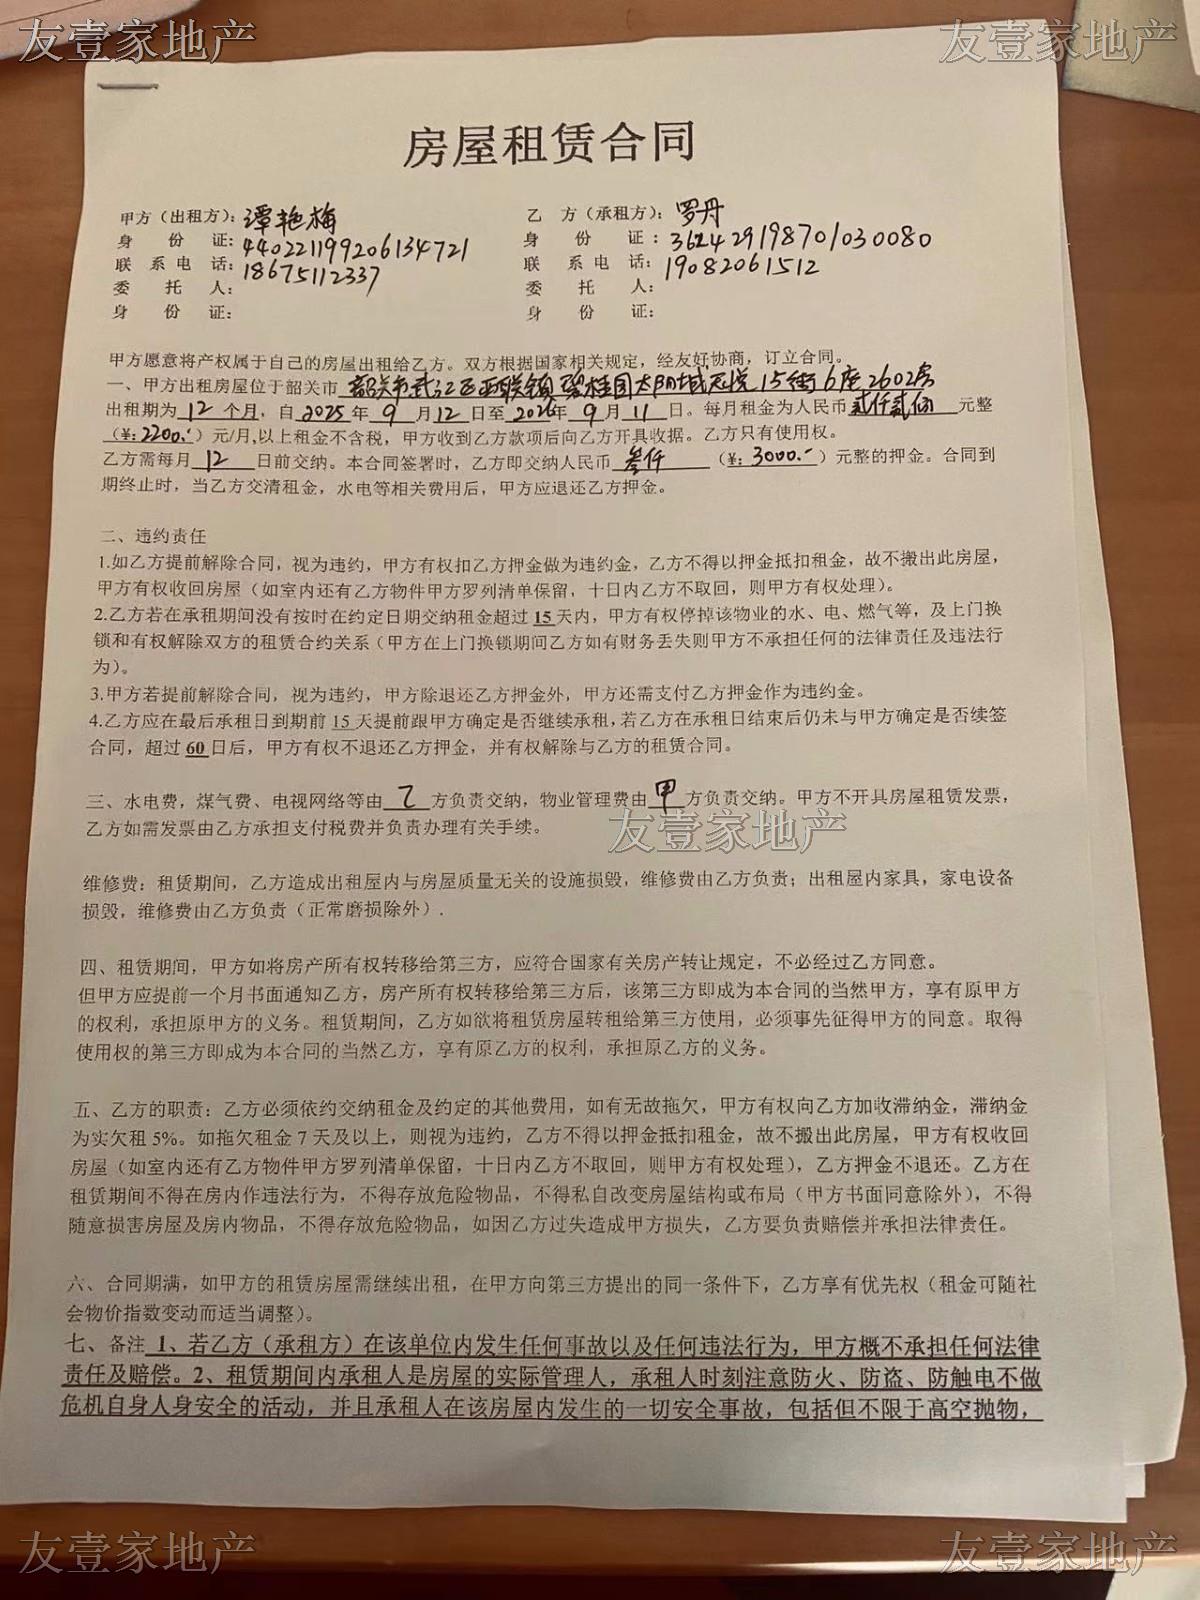 友壹家地产 友壹家地产
房屋租赁合同
甲方（出租方）：谭艳梅
身 份 证：440221199206134721
联 系 电 话：18675112337
委 托 人：
身 份 证：
乙 方（承租方）：罗丹
身 份 证：362429198701030080
联 系 电 话：19082061512
委 托 人：
身 份 证：
甲方愿意将产权属于自己的房屋出租给乙方。双方根据国家相关规定，经友好协商，订立合同。
一、甲方出租房屋位于韶关市 韶关市武江区西联镇碧桂园太阳城冠悦15街6座2602房
出租期为 12 个月，自 2025 年 9 月 12 日至 2026 年 9 月 11 日。每月租金为人民币 贰仟贰佰 元整
（¥：2200.-）元/月,以上租金不含税，甲方收到乙方款项后向乙方开具收据。乙方只有使用权。
乙方需每月 12 日前交纳。本合同签署时，乙方即交纳人民币 叁仟 （¥：3000.-）元整的押金。合同到
期终止时，当乙方交清租金，水电等相关费用后，甲方应退还乙方押金。
二、违约责任
1.如乙方提前解除合同，视为违约，甲方有权扣乙方押金做为违约金，乙方不得以押金抵扣租金，故不搬出此房屋，
甲方有权收回房屋（如室内还有乙方物件甲方罗列清单保留，十日内乙方不取回，则甲方有权处理）。
2.乙方若在承租期间没有按时在约定日期交纳租金超过 15 天内，甲方有权停掉该物业的水、电、燃气等，及上门换
锁和有权解除双方的租赁合约关系（甲方在上门换锁期间乙方如有财务丢失则甲方不承担任何的法律责任及违法行
为）。
3.甲方若提前解除合同，视为违约，甲方除退还乙方押金外，甲方还需支付乙方押金作为违约金。
4.乙方应在最后承租日到期前 15 天提前跟甲方确定是否继续承租，若乙方在承租日结束后仍未与甲方确定是否续签
合同，超过 60 日后，甲方有权不退还乙方押金，并有权解除与乙方的租赁合同。
三、水电费，煤气费、电视网络等由 乙 方负责交纳，物业管理费由 甲 方负责交纳。甲方不开具房屋租赁发票，
乙方如需发票由乙方承担支付税费并负责办理有关手续。
友壹家地产
维修费：租赁期间，乙方造成出租屋内与房屋质量无关的设施损毁，维修费由乙方负责；出租屋内家具，家电设备
损毁，维修费由乙方负责（正常磨损除外）.
四、租赁期间，甲方如将房产所有权转移给第三方，应符合国家有关房产转让规定，不必经过乙方同意。
但甲方应提前一个月书面通知乙方，房产所有权转移给第三方后，该第三方即成为本合同的当然甲方，享有原甲方
的权利，承担原甲方的义务。租赁期间，乙方如欲将租赁房屋转租给第三方使用，必须事先征得甲方的同意。取得
使用权的第三方即成为本合同的当然乙方，享有原乙方的权利，承担原乙方的义务。
五、乙方的职责：乙方必须依约交纳租金及约定的其他费用，如有无故拖欠，甲方有权向乙方加收滞纳金，滞纳金
为实欠租 5%。如拖欠租金 7 天及以上，则视为违约，乙方不得以押金抵扣租金，故不搬出此房屋，甲方有权收回
房屋（如室内还有乙方物件甲方罗列清单保留，十日内乙方不取回，则甲方有权处理），乙方押金不退还。乙方在
租赁期间不得在房内作违法行为，不得存放危险物品，不得私自改变房屋结构或布局（甲方书面同意除外），不得
随意损害房屋及房内物品，不得存放危险物品，如因乙方过失造成甲方损失，乙方要负责赔偿并承担法律责任。
六、合同期满，如甲方的租赁房屋需继续出租，在甲方向第三方提出的同一条件下，乙方享有优先权（租金可随社
会物价指数变动而适当调整）。
七、备注 1、若乙方（承租方）在该单位内发生任何事故以及任何违法行为，甲方概不承担任何法律
责任及赔偿。2、租赁期间内承租人是房屋的实际管理人，承租人时刻注意防火、防盗、防触电不做
危机自身人身安全的活动，并且承租人在该房屋内发生的一切安全事故，包括但不限于高空抛物，
友壹家地产 友壹家地产